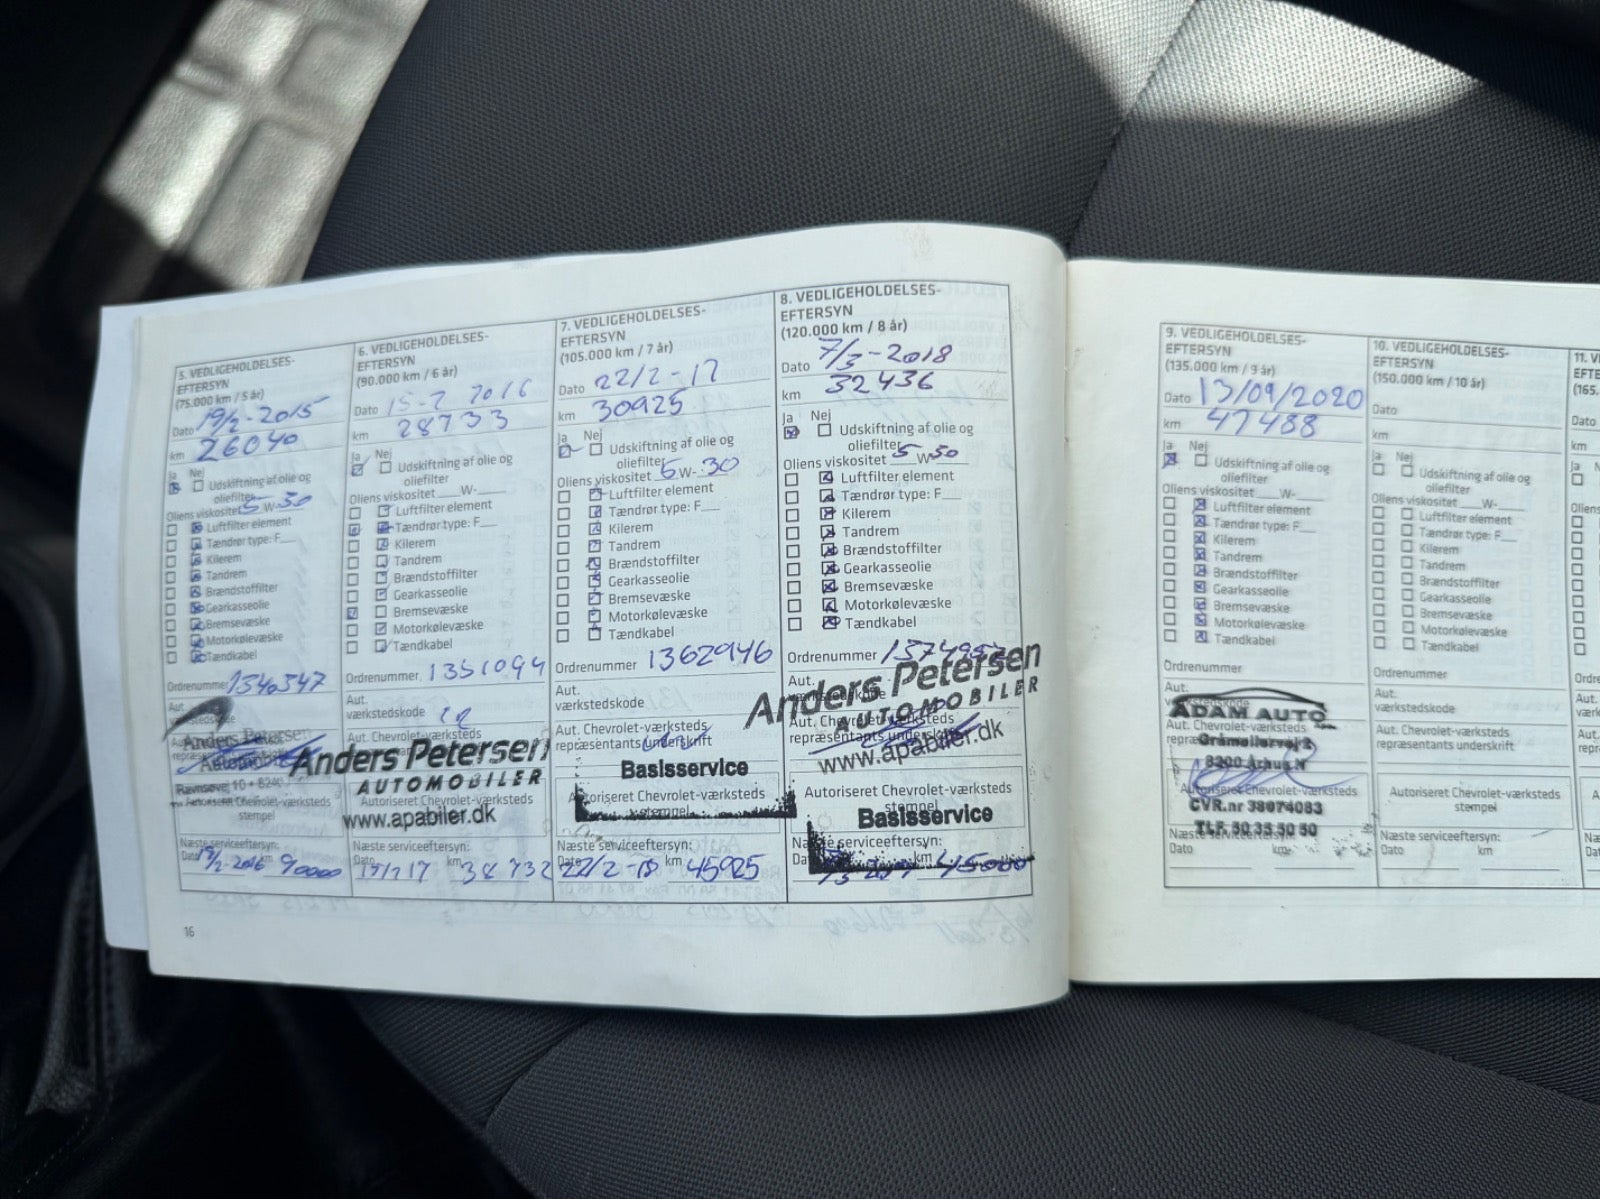 5. VEDLIGEHOLDELSES-
EFTERSYN
(75.000 km / 5 år)
Dato 19/2-2015
km 26040
Ja Nej
Udskiftning af olie og
oliefilter
Oliens viskositet 5 W-30
Luftfilter element
Tændrør type: F__
Kilerem
Tandrem
Brændstoffilter
Gearkasseolie
Bremsevæske
Motorkølevæske
Tændkabel
Ordrenummer 1340347
Aut.
værkstedskode
Anders Petersen
Automobiler
Autoriseret Chevrolet-værksteds
stempel
Næste serviceeftersyn:
Dato 19/2-2016 km 90000
16
6. VEDLIGEHOLDELSES-
EFTERSYN
(90.000 km / 6 år)
Dato 15-2 2016
km 28733
Ja Nej
Udskiftning af olie og
oliefilter
Oliens viskositet __W-__
Luftfilter element
Tændrør type: F__
Kilerem
Tandrem
Brændstoffilter
Gearkasseolie
Bremsevæske
Motorkølevæske
Tændkabel
Ordrenummer 1351094
Aut.
værkstedskode
Anders Petersen
AUTOMOBILER
Autoriseret Chevrolet-værksteds
www.apabiler.dk
Næste serviceeftersyn:
Dato km
7. VEDLIGEHOLDELSES-
EFTERSYN
(105.000 km / 7 år)
Dato 22/2-17
km 30925
Ja Nej
Udskiftning af olie og
oliefilter
Oliens viskositet 5 W-30
Luftfilter element
Tændrør type: F__
Kilerem
Tandrem
Brændstoffilter
Gearkasseolie
Bremsevæske
Motorkølevæske
Tændkabel
Ordrenummer 1362946
Aut.
værkstedskode
Aut. Chevrolet-værksteds
repræsentants underskrift
Basisservice
Autoriseret Chevrolet-værksteds
stempel
Næste serviceeftersyn:
Dato 22/2-18 km 45925
8. VEDLIGEHOLDELSES-
EFTERSYN
(120.000 km / 8 år)
Dato 7/3-2018
km 32436
Ja Nej
Udskiftning af olie og
oliefilter
Oliens viskositet 5 W-30
Luftfilter element
Tændrør type: F__
Kilerem
Tandrem
Brændstoffilter
Gearkasseolie
Bremsevæske
Motorkølevæske
Tændkabel
Ordrenummer
Anders Petersen
Aut.
værkstedskode
AUTOMOBILER
Aut. Chevrolet-værksteds
repræsentants underskrift
www.apabiler.dk
Autoriseret Chevrolet-værksteds
stempel
Basisservice
Næste serviceeftersyn:
km 45000
9. VEDLIGEHOLDELSES-
EFTERSYN
(135.000 km / 9 år)
Dato 13/09/2020
km 47488
Ja Nej
Udskiftning af olie og
oliefilter
Oliens viskositet __W-__
Luftfilter element
Tændrør type: F__
Kilerem
Tandrem
Brændstoffilter
Gearkasseolie
Bremsevæske
Motorkølevæske
Tændkabel
Ordrenummer
Aut.
værkstedskode
ADAM AUTO
Aut. Chevrolet-værksteds
Gråmøllervej 2
8200 Århus N
Autoriseret Chevrolet-værksteds
CVR.nr 38074083
TLF. 30 35 50 50
Næste serviceeftersyn:
Dato km
10. VEDLIGEHOLDELSES-
EFTERSYN
(150.000 km / 10 år)
Dato
km
Ja Nej
Udskiftning af olie og
oliefilter
Oliens viskositet __W-__
Luftfilter element
Tændrør type: F__
Kilerem
Tandrem
Brændstoffilter
Gearkasseolie
Bremsevæske
Motorkølevæske
Tændkabel
Ordrenummer
Aut.
værkstedskode
Aut. Chevrolet-værksteds
repræsentants underskrift
Autoriseret Chevrolet-værksteds
stempel
Næste serviceeftersyn:
Dato km
11.
Dato
km
Ja